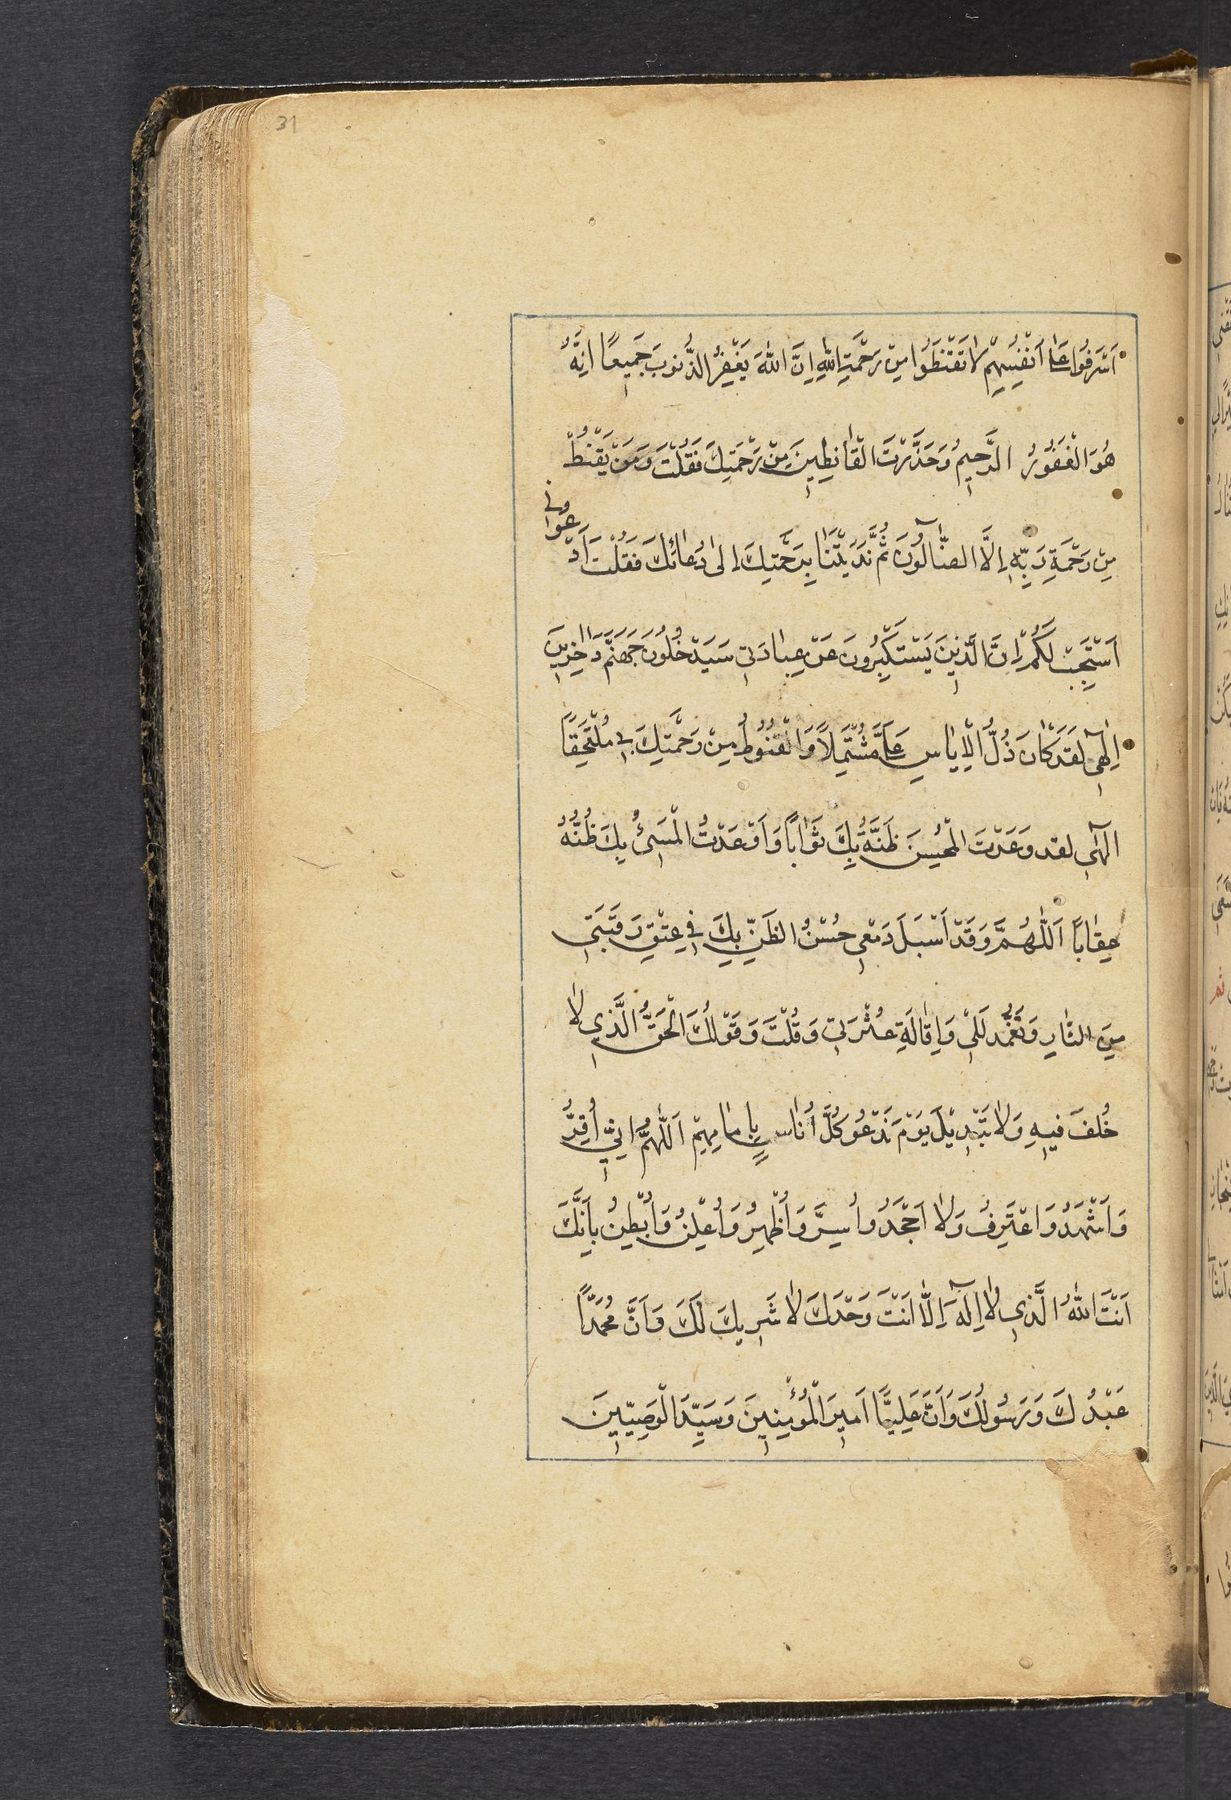 31
اَسْرَفُوا عَلٰى اَنْفُسِهِمْ لاٰ تَقْنَطُوا مِنْ رَحْمَتِ اللّٰهِ اِنَّ اللّٰهَ يَغْفِرُ الذُّنوبَ جَمِيعًا اِنَّهُ
هُوَ الْغَفُورُ الرَّحِيمُ وَحَذَّرْتَ الْقٰانِطِينَ مِنْ رَحْمَتِكَ فَقُلْتَ وَمَنْ يَقْنُطْ
مِنْ رَحْمَةِ رَبِّهِ اِلَّا الضّٰٓالُّونَ ثُمَّ نَدَيْتَنٰا بِرَحْمَتِكَ اِلىٰ دُعٰائِكَ فَقُلْتَ اَدْعُوانى
اَسْتَجِبْ لَكُمْ اِنَّ الَّذينَ يَسْتَكْبِرُونَ عَنْ عِبٰادَتى سَيَدْخُلُونَ جَهَنَّمَ دٰاخِرينَ
اِلٰهٓى لَقَدْ كٰانَ ذُلُّ الْاِيٰاسِ عَلَىَّ مُشْتَمِلًا وَالْقُنُوطُ مِنْ رَحْمَتِكَ بى مُلْتَحِقًا
الٓهٰى لقد وَعَدْتَ الْمُحْسِنَ ظَنَّهُ بِكَ ثَوٰابًا وَاَوْعَدْتَ الْمُسَىئُ بِكَ ظَنُّهُ
عِقٰابًا اَللّٰهُمَّ وَقَدْ اَسْبَلَ دَمْعى حُسْنُ الظَنِّ بِكَ فى عِتْقِ رَقَبَتى
مِنَ النّٰارِ وَتَغَمُّدِ زَلَلى وَاِقٰالَةِ عَثْرَتى وَقُلْتَ وَقَوْلُكَ الْحَقُّ الَّذى لاٰ
خُلْفَ فيهِ وَلاٰ تَبْديلَ يَوْمَ نَدْعُو كُلَّ اُنٰاسٍ بِاِمٰامِهِمْ اَللّٰهُمَّ اِنّى اُقِرُّ
وَاَشْهَدُ وَاَعْتَرِفُ وَلاٰ اَجْحَدُ وَاُسِرُّ وَاُظْهِرُ وَاُعْلِنُ وَاُبْطِنُ بِاَنَّكَ
اَنْتَ اللّٰهُ الَّذى لاٰ اِلٰهَ اِلّٰا اَنْتَ وَحْدَكَ لاٰ شَريكَ لَكَ وَاَنَّ مُحَمَّدًا
عَبْدُكَ وَرَسُولُكَ وَاَنَّ عَلِيًّا اَميرَ الْمُؤْمِنِينَ وَسَيِّدَ الْوَصِيّينَ